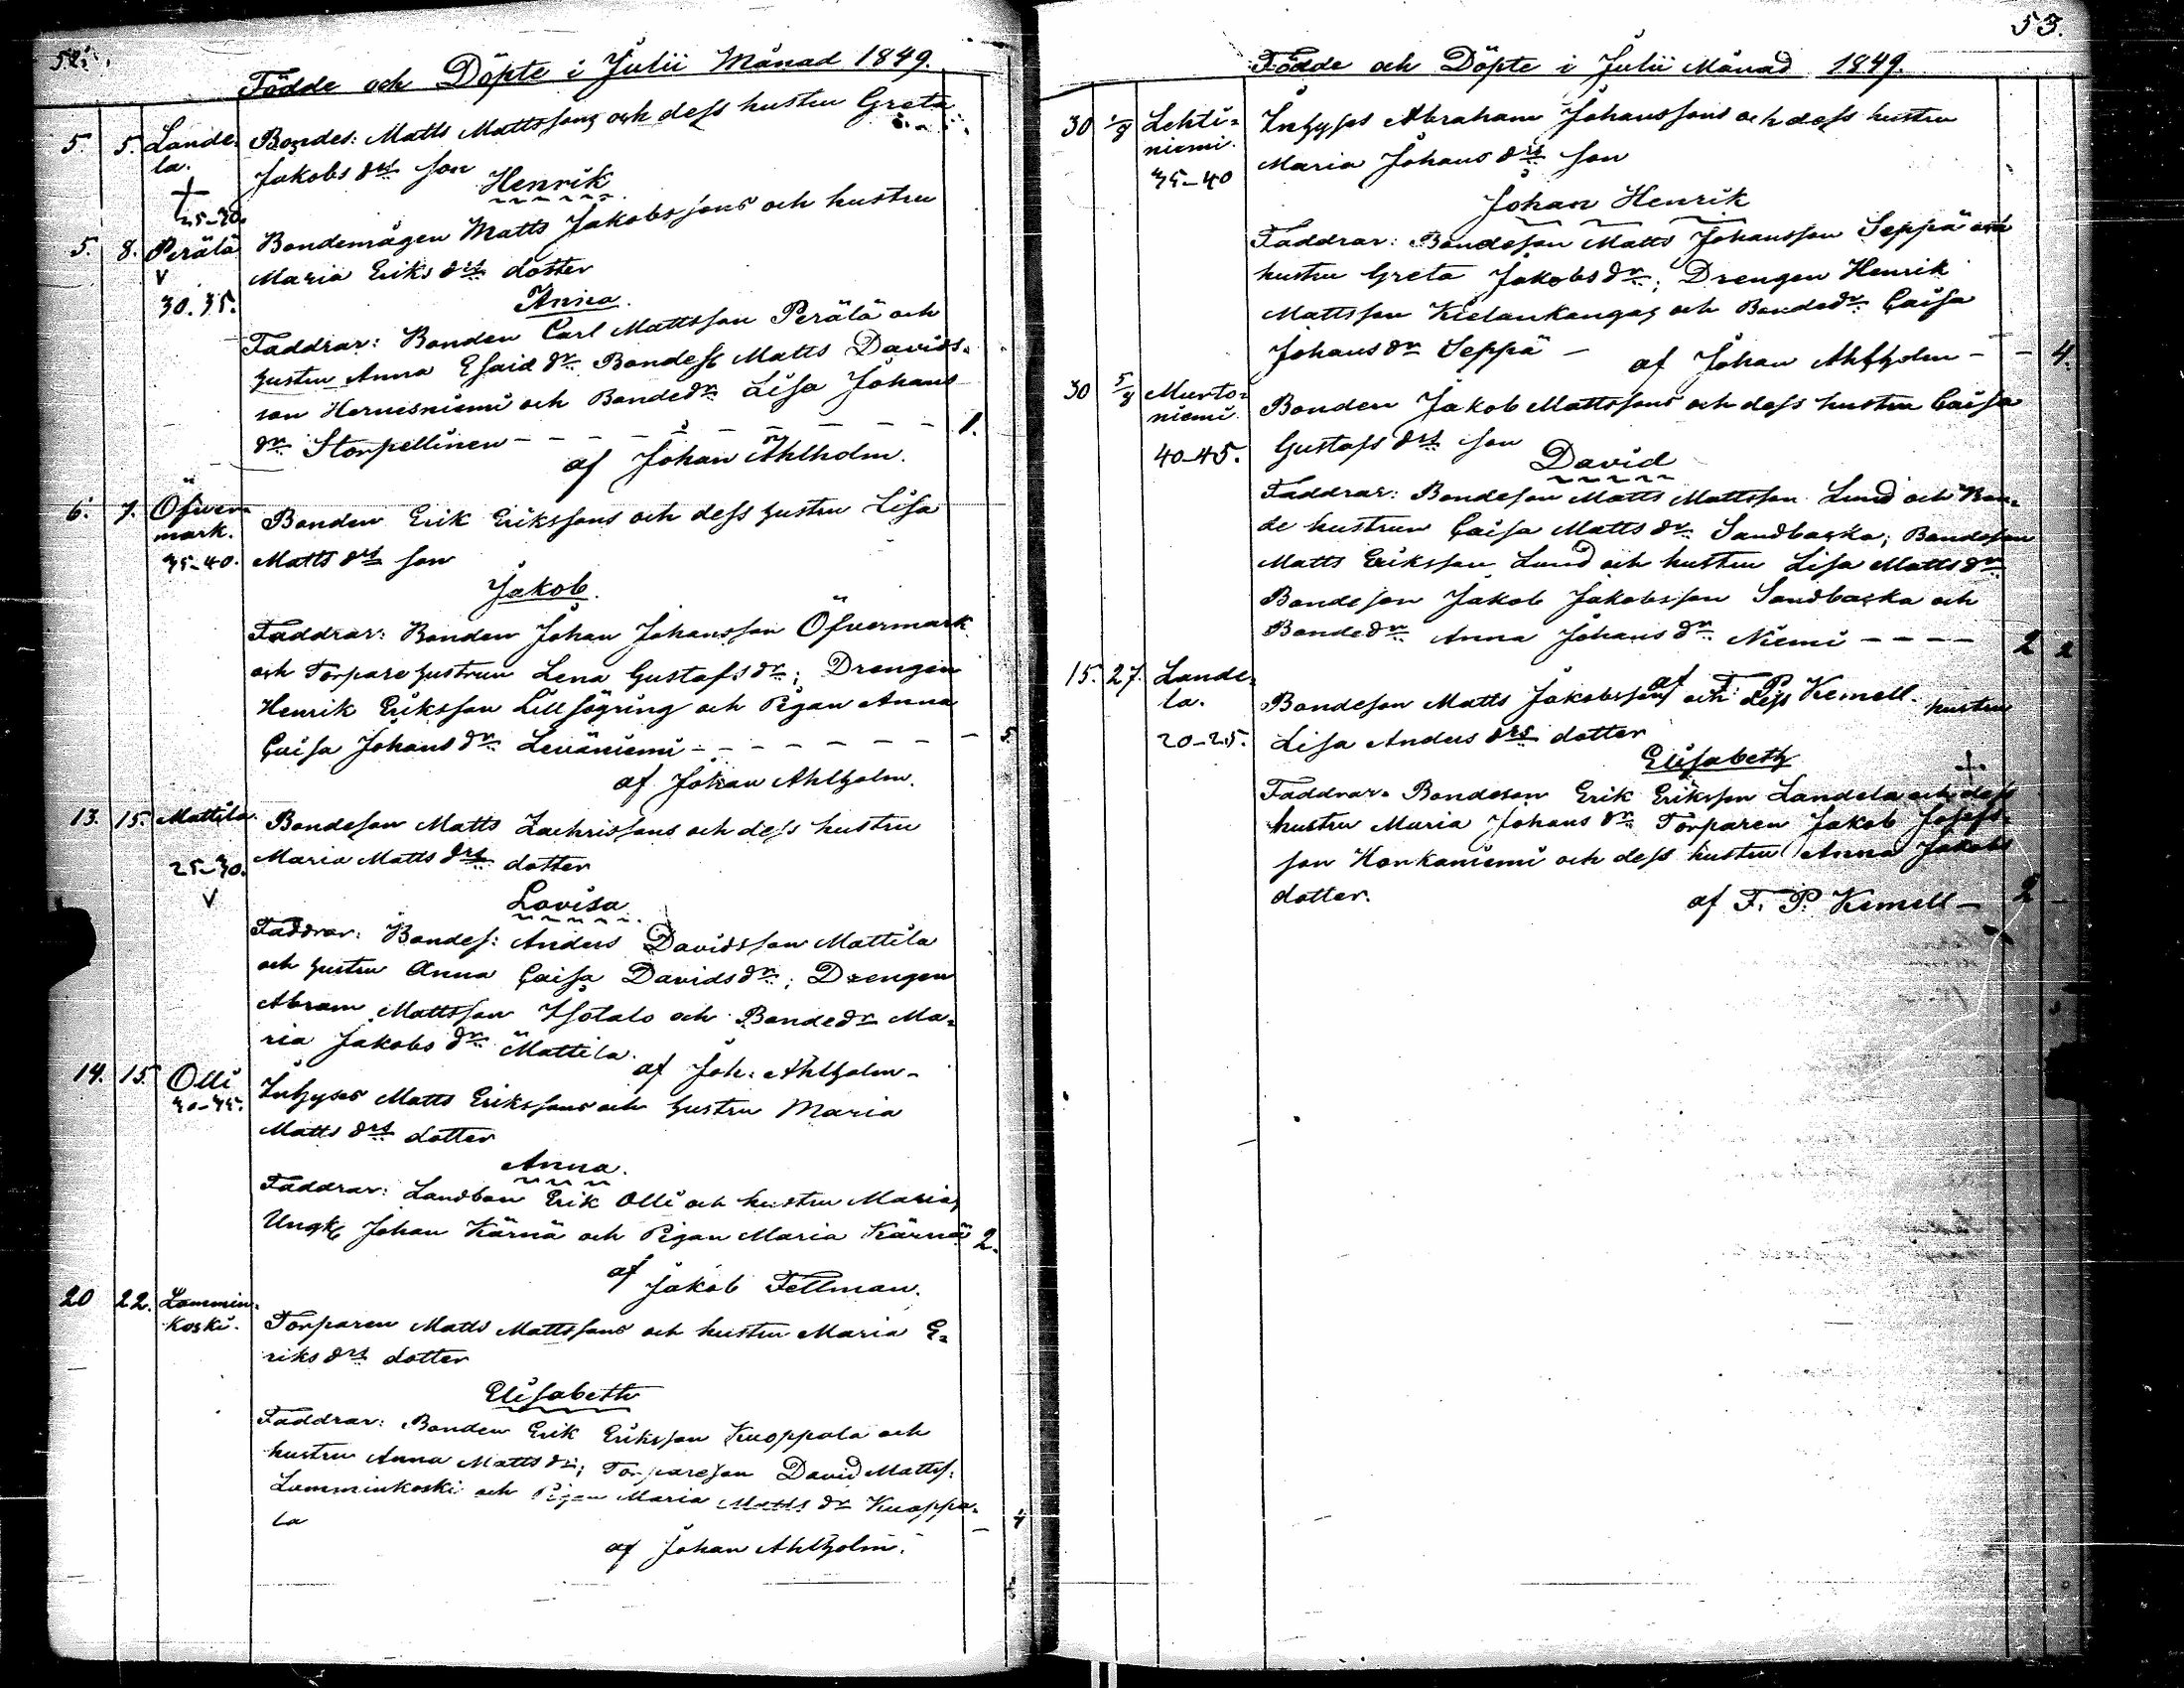 52.
Födde och Döpte i Julii Månad 1849.
5. 5. Lande- Bondes: Matts Mattssons och dess hustru Greta
la. Jakobs drs son
Henrik
25-30.
5. 8. Perälä Bondemågen Matts Jakobssons och hustru
V Maria Eriks drs dotter
30. 35. Anna.
Faddrar: Bonden Carl Mattsson Perälä och
hustru Anna Esaiæ dr Bondes: Matts Davids-
son Hernesniemi och Bondedr Lisa Johans
dr Storpellinen - - - - - - - - 1.
af Johan Åhlholm.
6. 7. Öfver- Bonden Erik Erikssons och dess hustru Lisa
mark.
35-40. Matts drs son
Jakob.
Faddrar: Bonden Johan Johansson Öfvermark
och Torpare hustrun Lena Gustafs dr; Drengen
Henrik Eriksson Lillsögring och Pigan Anna
Caisa Johans dr Leväniemi - - - - - - - 5.
af Johan Ahlholm.
13. 15. Mattila. Bondeson Matts Zachrissons och dess hustru
25-30. Maria Matts drs dotter
V Lovisa
Faddrar: Bondes: Anders Davidsson Mattila
och hustru Anna Caisa Davids dr; Drengen
Abram Mattsson Isotalo och Bondedr Ma-
ria Jakobs dr Mattila.
af Joh: Ahlholm-
14. 15. Olli Inhyses Matts Erikssons och hustru Maria
30-35. Matts drs dotter
Anna.
Faddrar: Landbon Erik Olli och hustru Maria,
Ungk Johan Kärnä och Pigan Maria Kärnä 2.
af Jakob Fellman.
20 22. Lammin- Torparen Matts Mattssons och hustru Maria E-
koski. riks drs dotter
Elisabeth
Faddrar: Bonden Erik Eriksson Kuoppala och
hustru Anna Matts dr; Torpareson David Mattss:
Lamminkoski och Pigan Maria Matts dr Kuoppa-
la - 4
af Johan Ahlholm.
53.
Födde och Döpte i Julii Månad 1849.
30 1/8 Lehti- Inhyses Abraham Johanssons och dess hustru
niemi. Maria Johans drs son
35-40
Johan Henrik
Faddrar: Bondeson Matts Johansson Seppä och
hustru Greta Jakobs dr; Drengen Henrik
Mattsson Kielankangas och Bondedr Caisa
Johans dr Seppä - af Johan Ahlholm - - 4.
30 5/8 Murto- Bonden Jakob Mattssons och dess hustru Caisa
niemi.
40-45. Gustafs drs son
David
Faddrar: Bondeson Matts Mattsson Lund och Bon-
de hustrun Caisa Matts dr Sandbacka; Bondeson
Matts Eriksson Lund och hustru Lisa Matts dr
Bondeson Jakob Jakobsson Sandbacka och
Bondedr Anna Johans dr Niemi - - - - 2 2
af F. P. Kemell.
15. 27. Lande- Bondeson Matts Jakobssons och dess hustru
la.
20-25. Lisa Anders drs dotter
Elisabeth
Faddrar. Bondeson Erik Eriksson Landela och dess
hustru Maria Johans dr Torparen Jakob Josefs-
son Konkaniemi och dess hustru Anna Jakobs
dotter. af F. P. Kemell - 2 -